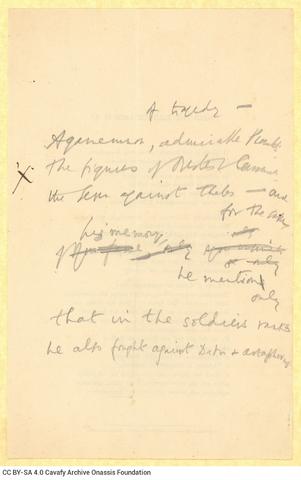 A tragedy —
Agamemnon, admirable Prometheus
the figures of Orestes Cassandra
X.
the Seven against Thebes — and
for the
his memory only
of only
or only
he mentions
only
that in the soldiers ranks
he also fought against Datis & Artaphernes
CC BY-SA 4.0 Cavafy Archive Onassis Foundation